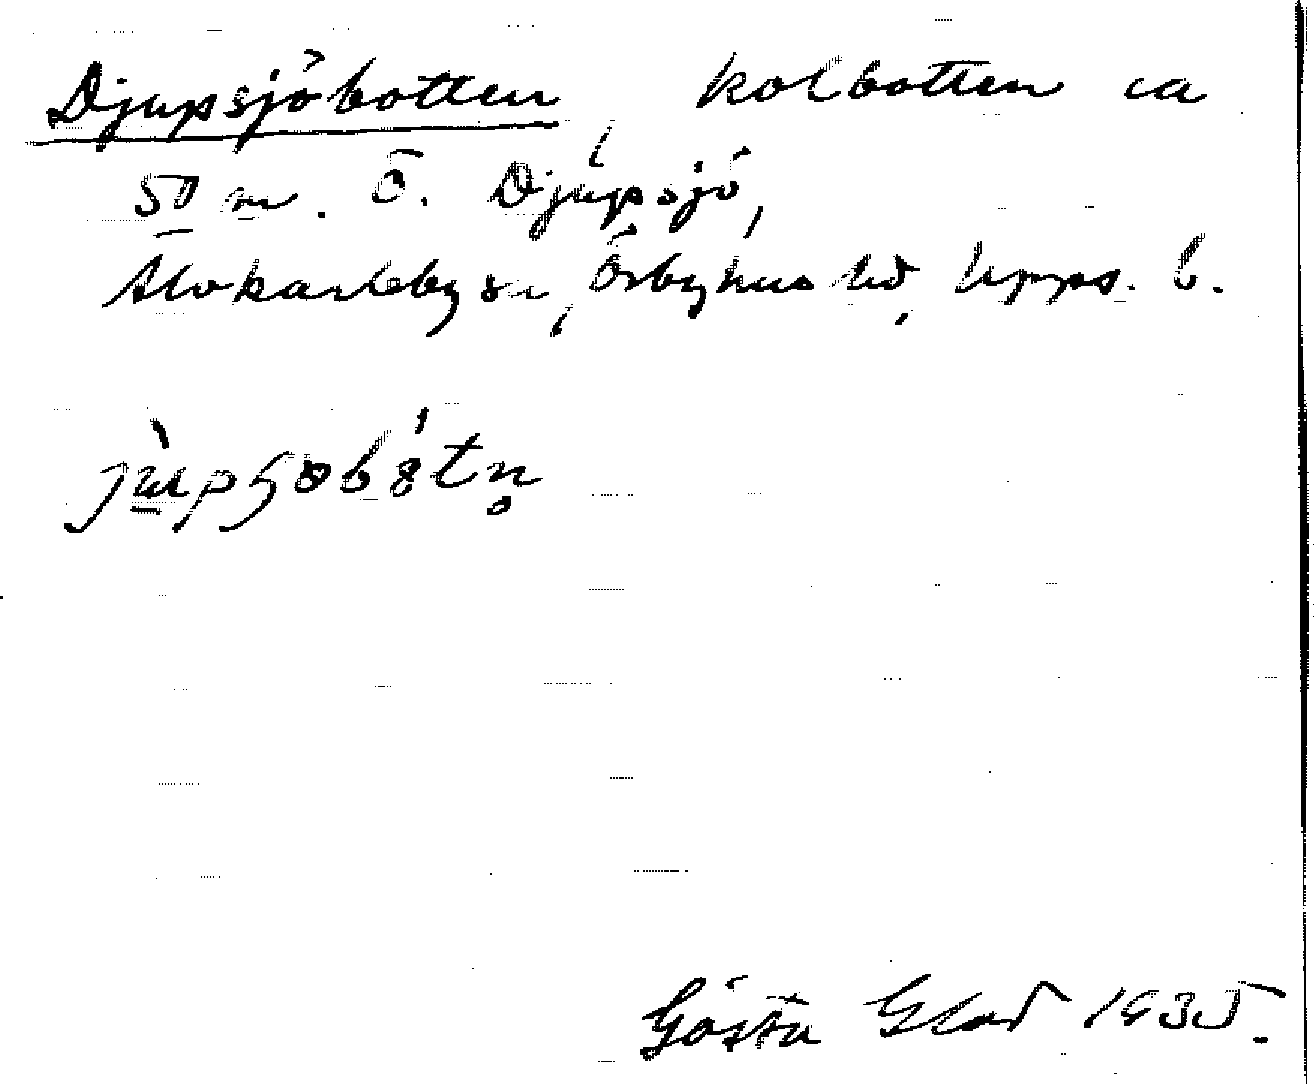 Djupsjöbotten, kolbotten ca
50 m. Ö. Djupsjö,
Älvkarleby sn, Örbyhus hd, Upps. l.
Gösta Glad 1935.